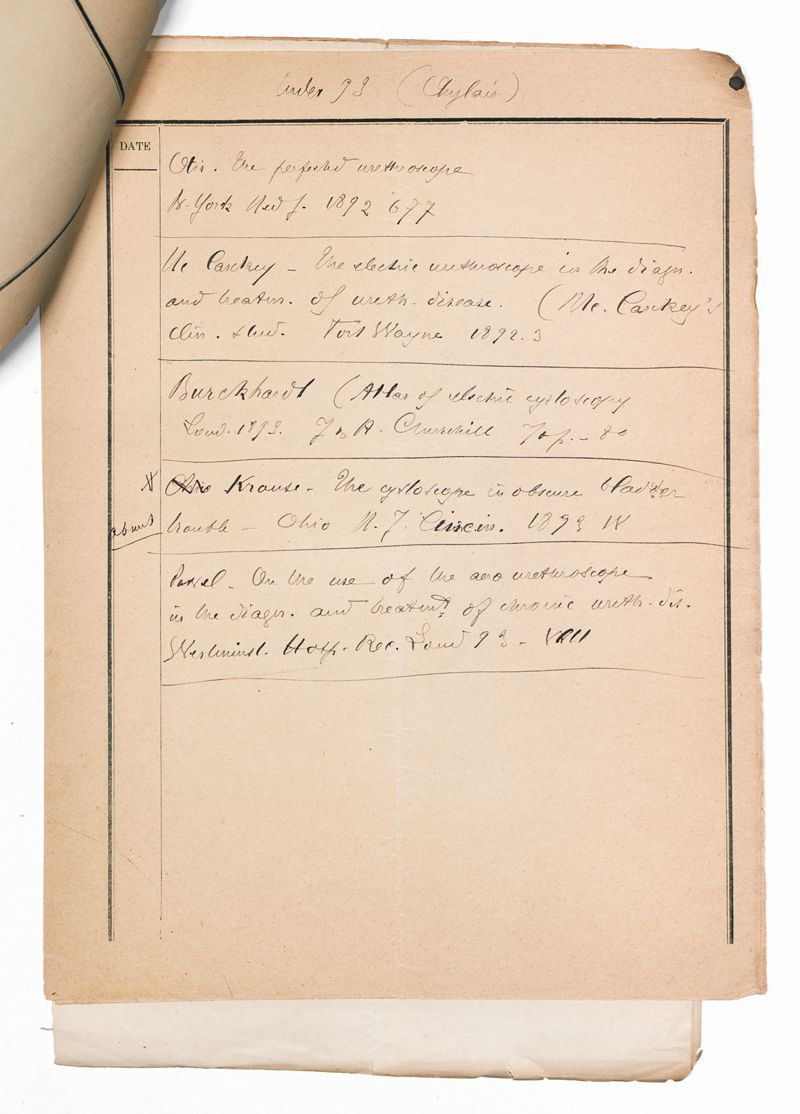 Index 93 (Anglais)
DATE
Otis. The perfected urethroscope
N. York Med J. 1892 677
Mc Caskey – The electric urethroscope in the diagn.
and treatm. of ureth. disease. (Mc. Caskey's
clin. stud. Fort Wayne 1892.3
Burckhardt (Atlas of electric cystoscopy
Lond. 1893. J & A. Churchill
Krause – The cystoscope in obscure bladder
trouble – Ohio M. J. Cincin. 1893 IV
On the use of the aero urethroscope
in the diagn. and treatmt of chronic ureth. dis.
Westminst. Hosp. Rec. Lond 93 – VIII